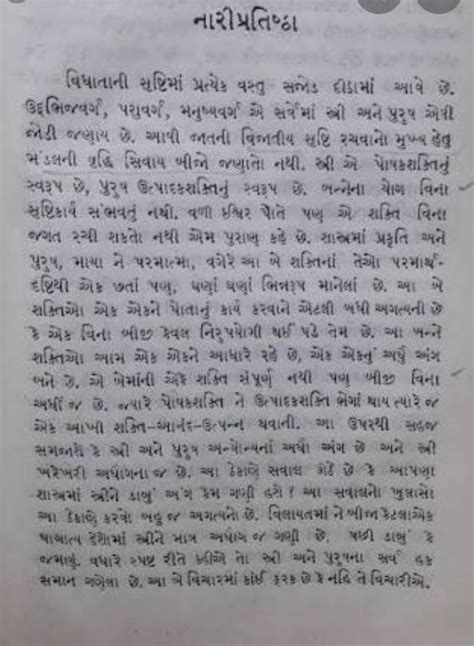 નારીપ્રતિષ્ઠા
વિધાતાની સૃષ્ટિમાં પ્રત્યેક વસ્તુ સજોડ દીઠામાં આવે છે.
ઉદ્ભિજવર્ગ, પશુવર્ગ, મનુષ્યવર્ગ એ સર્વેમાં સ્ત્રી અને પુરુષ એવી
જોડી જણાય છે. આવી જાતની વિજાતીય સૃષ્ટિ રચવાનો મુખ્ય હેતુ
મંડલની વૃદ્ધિ સિવાય બીજો જણાતો નથી. સ્ત્રી એ પોષકશક્તિનું
સ્વરૂપ છે, પુરુષ ઉત્પાદકશક્તિનું સ્વરૂપ છે. બન્નેના યોગ વિના
સૃષ્ટિકાર્ય સંભવતું નથી. વળી ઈશ્વર પોતે પણ એ શક્તિ વિના
જગત રચી શકતો નથી એમ પુરાણ કહે છે. શાસ્ત્રમાં પ્રકૃતિ અને
પુરુષ, માયા ને પરમાત્મા, વગેરે આ બે શક્તિનાં તેઓ પરમાર્થ-
દૃષ્ટિથી એક છતાં પણ, ઘણાં ઘણાં ભિન્નરૂપ માનેલાં છે. આ બે
શક્તિઓ એક એકને પોતાનું કાર્ય કરવાને એટલી બધી અગત્યની છે
કે એક વિના બીજી કેવલ નિરુપયોગી થઈ પડે તેમ છે. આ બન્ને
શક્તિઓ આમ એક એકને આધારે રહે છે, એક એકનું અર્ધું અંગ
બને છે. એ બેમાંની એકે શક્તિ સંપૂર્ણ નથી પણ બીજી વિના
અર્ધી જ છે. જ્યારે પોષકશક્તિ ને ઉત્પાદકશક્તિ ભેગાં થાય ત્યારે જ
એક આખી શક્તિ-આનંદ-ઉત્પન્ન થવાની. આ ઉપરથી સહજ
સમજાશે કે સ્ત્રી અને પુરુષ અન્યોન્યનાં અર્ધાં અંગ છે અને સ્ત્રી
ખરેખરી અર્ધાંગના જ છે. આ ઠેકાણે સવાલ ઊઠે છે કે આપણા
શાસ્ત્રમાં સ્ત્રીને ડાબું અંગ કેમ ગણી હશે? આ સવાલનો ખુલાસો
આ ઠેકાણે કરવો બહુ જ અગત્યનો છે. વિલાયતમાં ને બીજા કેટલાએક
પાશ્ચાત્ય દેશોમાં સ્ત્રીને માત્ર અર્ધાંગ જ ગણી છે. પછી ડાબું કે
જમણું. વધારે સ્પષ્ટ રીતે કહીએ તો સ્ત્રી અને પુરુષના સર્વ હક
સમાન ગણેલા છે. આ બે વિચારમાં કાંઈ ફરક છે કે નહિ તે વિચારીએ.